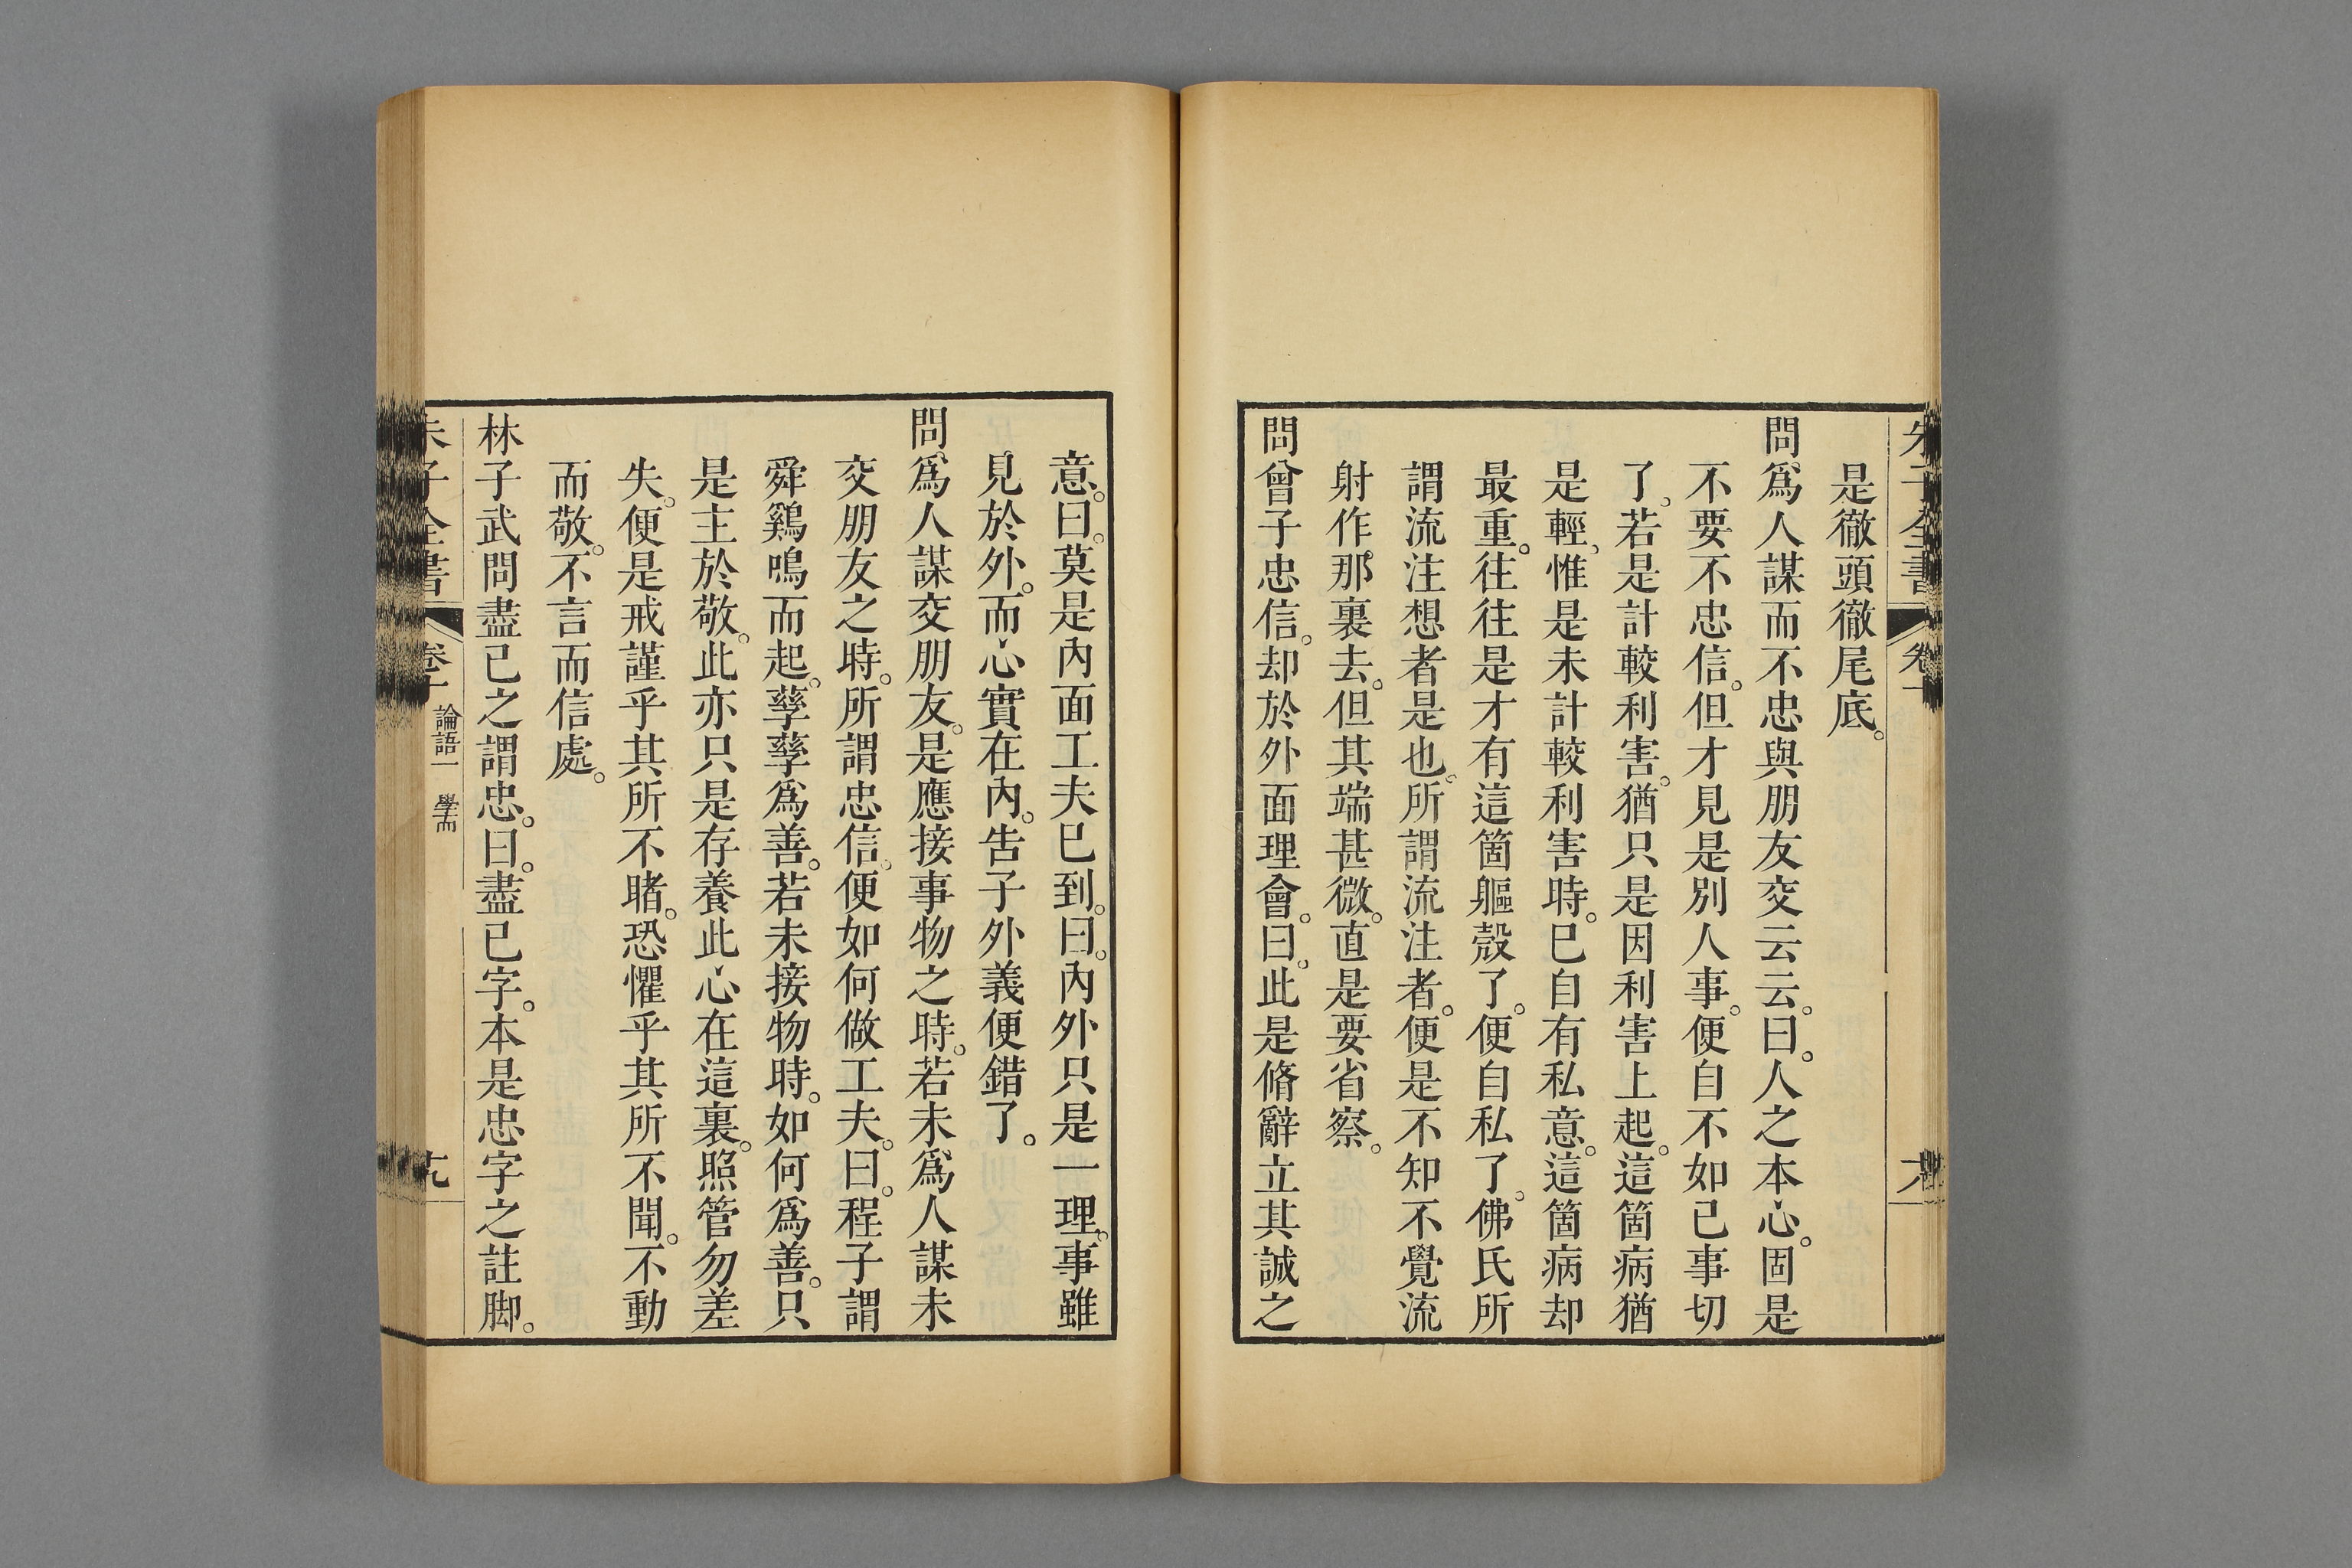 是徹頭徹尾底。
問爲人謀而不忠與朋友交云云。曰。人之本心。固是
不要不忠信。但才見是別人事。便自不如己事切
了。若是計較利害。猶只是因利害上起。這箇病猶
是輕。惟是未計較利害時。已自有私意。這箇病却
最重。往往是才有這箇軀殼了。便自私了。佛氏所
謂流注想者是也。所謂流注者。便是不知不覺流
射作那裏去。但其端甚微。直是要省察。
問曾子忠信。却於外面理會。曰。此是脩辭立其誠之
意。曰。莫是內面工夫已到。曰。內外只是一理。事雖
見於外。而心實在內。告子外義便錯了。
問。爲人謀交朋友。是應接事物之時。若未爲人謀未
交朋友之時。所謂忠信。便如何做工夫。曰。程子謂
舜鷄鳴而起。孳孳爲善。若未接物時。如何爲善。只
是主於敬。此亦只是存養此心在這裏。照管勿差
失。便是戒謹乎其所不睹。恐懼乎其所不聞。不動
而敬。不言而信處。
林子武問盡己之謂忠。曰。盡己字。本是忠字之註脚。
子全書
論語一 學而